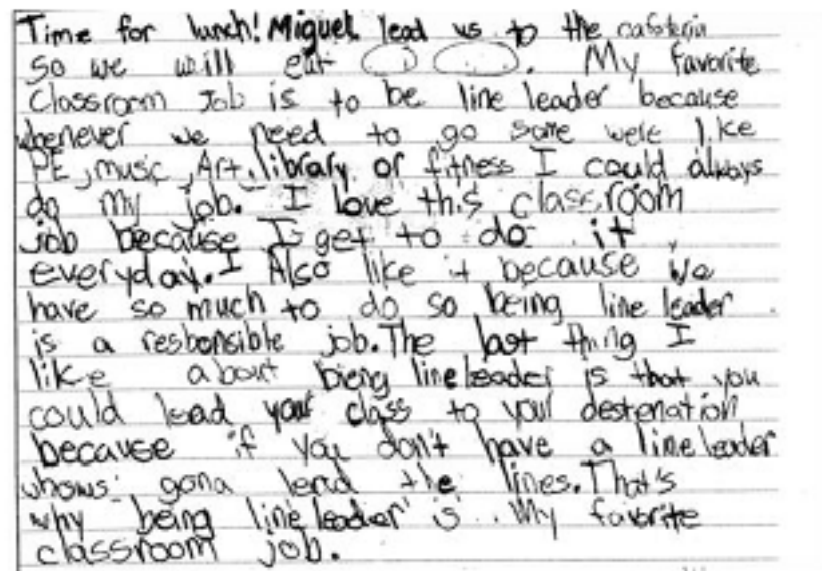 Time for lunch! Miguel lead us to the cafeteria
so we will eat. My favorite
Classroom Job is to be line leader because
whenever we need to go some were like
PE, music, Art, library or fitness I could always
do my job. I love this classroom
job because I get to do it
everyday. I Also like it because we
have so much to do so being line leader
is a responsible job. The last thing I
like about bieng line leader is that you
could lead your class to your destenation
because if you don't have a line leader
whows gona lead the lines. That's
why being line leader is My favorite
classroom job.